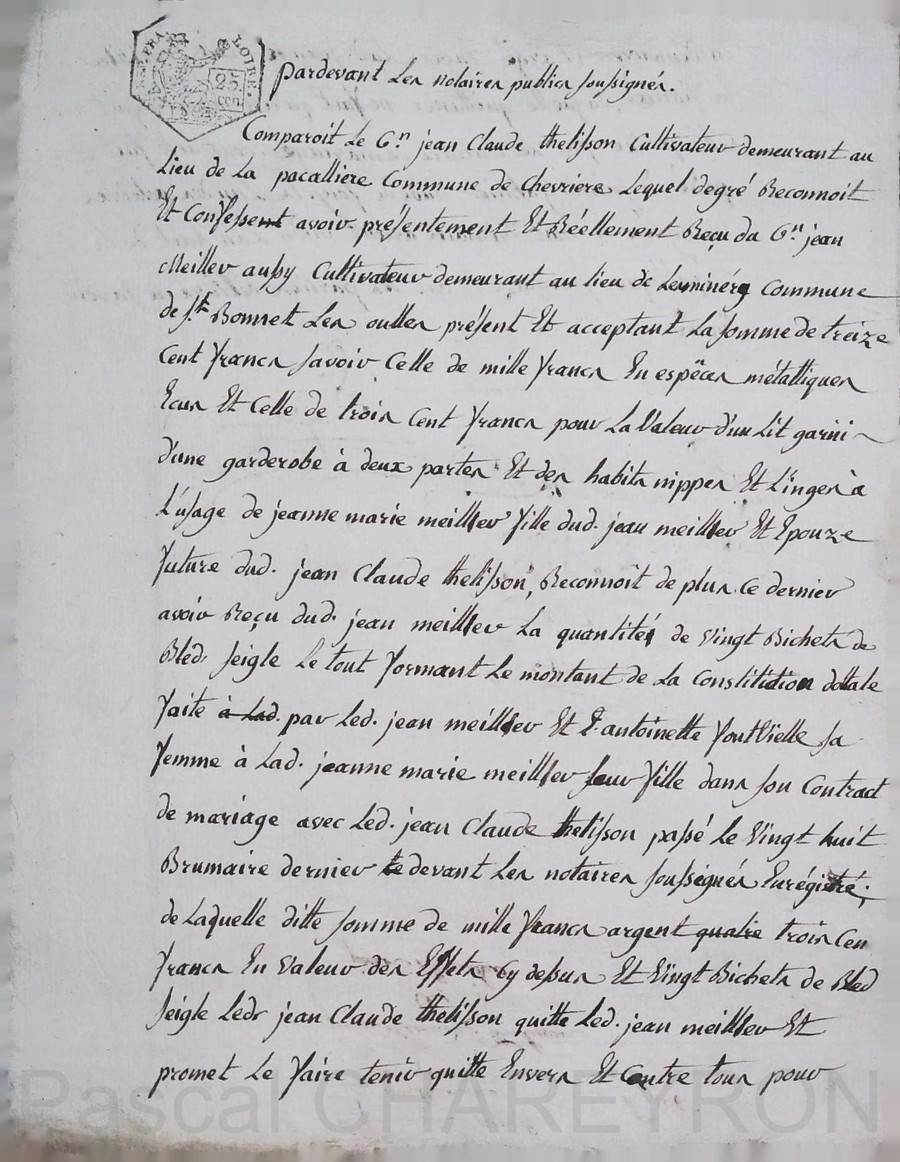 REP. FRA. LOIRE.
25 cen
pardevant Les notaires publics soussignés.
Comparoit Le C.en jean Claude thelisson Cultivateur demeurant au
Lieu de La pacalliere Commune de Chevriere Lequel degré Reconnoit
Et Confessent avoir présentement Et Réellement Reçu du C.en jean
Meiller aussy Cultivateur demeurant au lieu de Commune
de St. Bonnet Les oulles présent Et acceptant La somme de treize
Cent francs savoir Celle de mille francs En espèces métalliques
Ecus Et Celle de trois Cent francs pour La Valeur d'un Lit garni
d'une garderobe à deux portes Et des habits nippes Et Linges à
L'usage de jeanne marie meiller fille dud. jean meiller Et Epouze
future dud. jean Claude thelisson, Reconnoit de plus Ce dernier
avoir Reçu dud. jean meiller La quantité de vingt Bichets de
Bled seigle Le tout formant Le montant de La Constitution dottale
faite à Lad. par Led. jean meiller Et antoinette fontvielle sa
femme à Lad. jeanne marie meiller Leur fille dans son Contract
de mariage avec Led. jean Claude thelisson passé Le Vingt huit
Brumaire dernier devant Les notaires soussignés Enrégistré;
de Laquelle ditte somme de mille francs argent quatre trois Cen
francs En Valeur des Effets Cy dessus Et Vingt Bichets de Bled
seigle Led. jean Claude thelisson quitte Led. jean meiller Et
promet Le faire tenir quitte Envers Et Contre tous pour
Pascal CHAREYRON